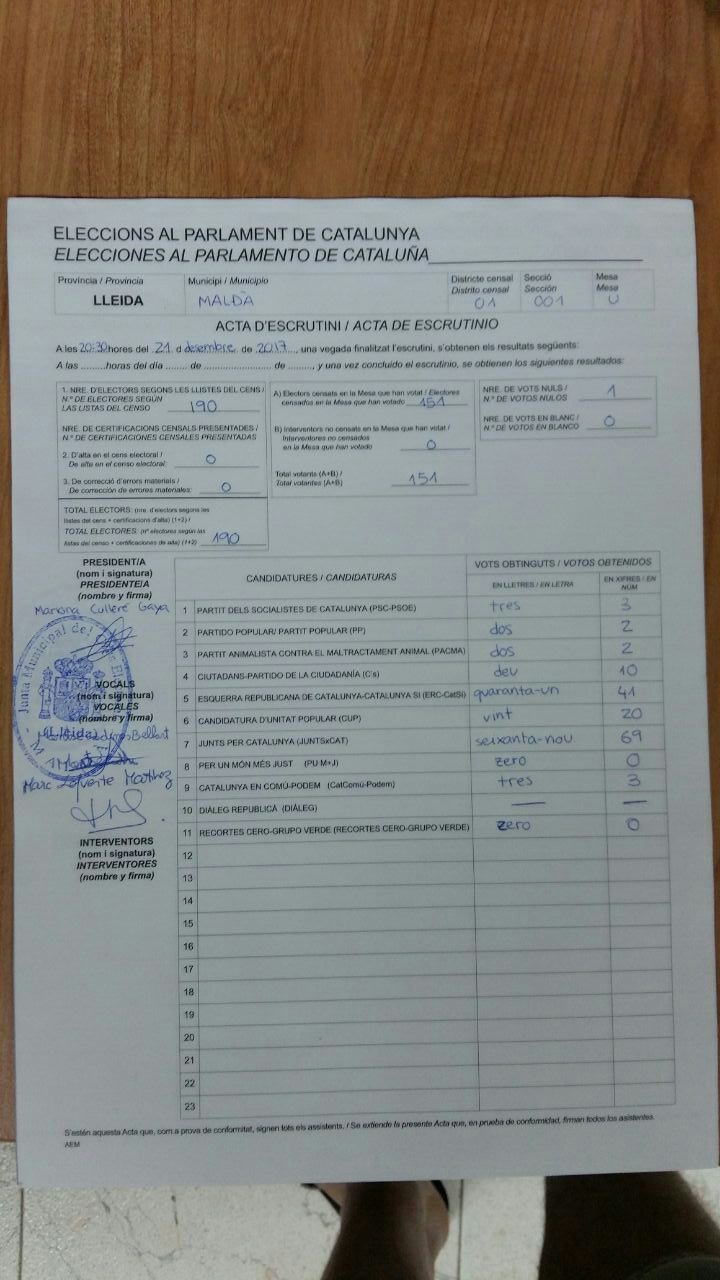 ELECCIONS AL PARLAMENT DE CATALUNYA
ELECCIONES AL PARLAMENTO DE CATALUÑA
Província / Provincia Municipi / Municipio Districte censal Secció Mesa
Distrito censal Sección Mesa
LLEIDA MALDÀ 01 001 U
ACTA D'ESCRUTINI / ACTA DE ESCRUTINIO
A les 20:30 hores del 21 d desembre de 2017, una vegada finalitzat l'escrutini, s'obtenen els resultats següents:
A las ........horas del día ....... de .................. de ........., y una vez concluido el escrutinio, se obtienen los siguientes resultados:
1. NRE. D'ELECTORS SEGONS LES LLISTES DEL CENS /
N.º DE ELECTORES SEGÚN
LAS LISTAS DEL CENSO 190
NRE. DE CERTIFICACIONS CENSALS PRESENTADES /
N.º DE CERTIFICACIONES CENSALES PRESENTADAS
2. D'alta en el cens electoral /
De alta en el censo electoral: 0
3. De correcció d'errors materials /
De corrección de errores materiales: 0
TOTAL ELECTORS: (nre. d'electors segons les
llistes del cens + certificacions d'alta) (1+2) /
TOTAL ELECTORES: (nº electores según las
listas del censo + certificaciones de alta) (1+2) 190
A) Electors censats en la Mesa que han votat / Electores
censados en la Mesa que han votado 151
B) Interventors no censats en la Mesa que han votat /
Interventores no censados
en la Mesa que han votado 0
Total votants (A+B) /
Total votantes (A+B) 151
NRE. DE VOTS NULS /
N.º DE VOTOS NULOS 1
NRE. DE VOTS EN BLANC /
N.º DE VOTOS EN BLANCO 0
PRESIDENT/A
(nom i signatura)
PRESIDENTE/A
(nombre y firma)
Mariona Culleré Gaya
Junta Municipal del
VOCALS
(nom i signatura)
VOCALES
(nombre y firma)
Bellart
Marc Martínez
INTERVENTORS
(nom i signatura)
INTERVENTORES
(nombre y firma)
CANDIDATURES / CANDIDATURAS VOTS OBTINGUTS / VOTOS OBTENIDOS
EN LLETRES / EN LETRA EN XIFRES / EN NÚM.
1 PARTIT DELS SOCIALISTES DE CATALUNYA (PSC-PSOE) tres 3
2 PARTIDO POPULAR/ PARTIT POPULAR (PP) dos 2
3 PARTIT ANIMALISTA CONTRA EL MALTRACTAMENT ANIMAL (PACMA) dos 2
4 CIUTADANS-PARTIDO DE LA CIUDADANÍA (C's) deu 10
5 ESQUERRA REPUBLICANA DE CATALUNYA-CATALUNYA SÍ (ERC-CatSí) quaranta-un 41
6 CANDIDATURA D'UNITAT POPULAR (CUP) vint 20
7 JUNTS PER CATALUNYA (JUNTSxCAT) seixanta-nou 69
8 PER UN MÓN MÉS JUST (PU M+J) zero 0
9 CATALUNYA EN COMÚ-PODEM (CatComú-Podem) tres 3
10 DIÀLEG REPUBLICÀ (DIÀLEG) — —
11 RECORTES CERO-GRUPO VERDE (RECORTES CERO-GRUPO VERDE) zero 0
12
13
14
15
16
17
18
19
20
21
22
23
S'estén aquesta Acta que, com a prova de conformitat, signen tots els assistents. / Se extiende la presente Acta que, en prueba de conformidad, firman todos los asistentes.
AEM